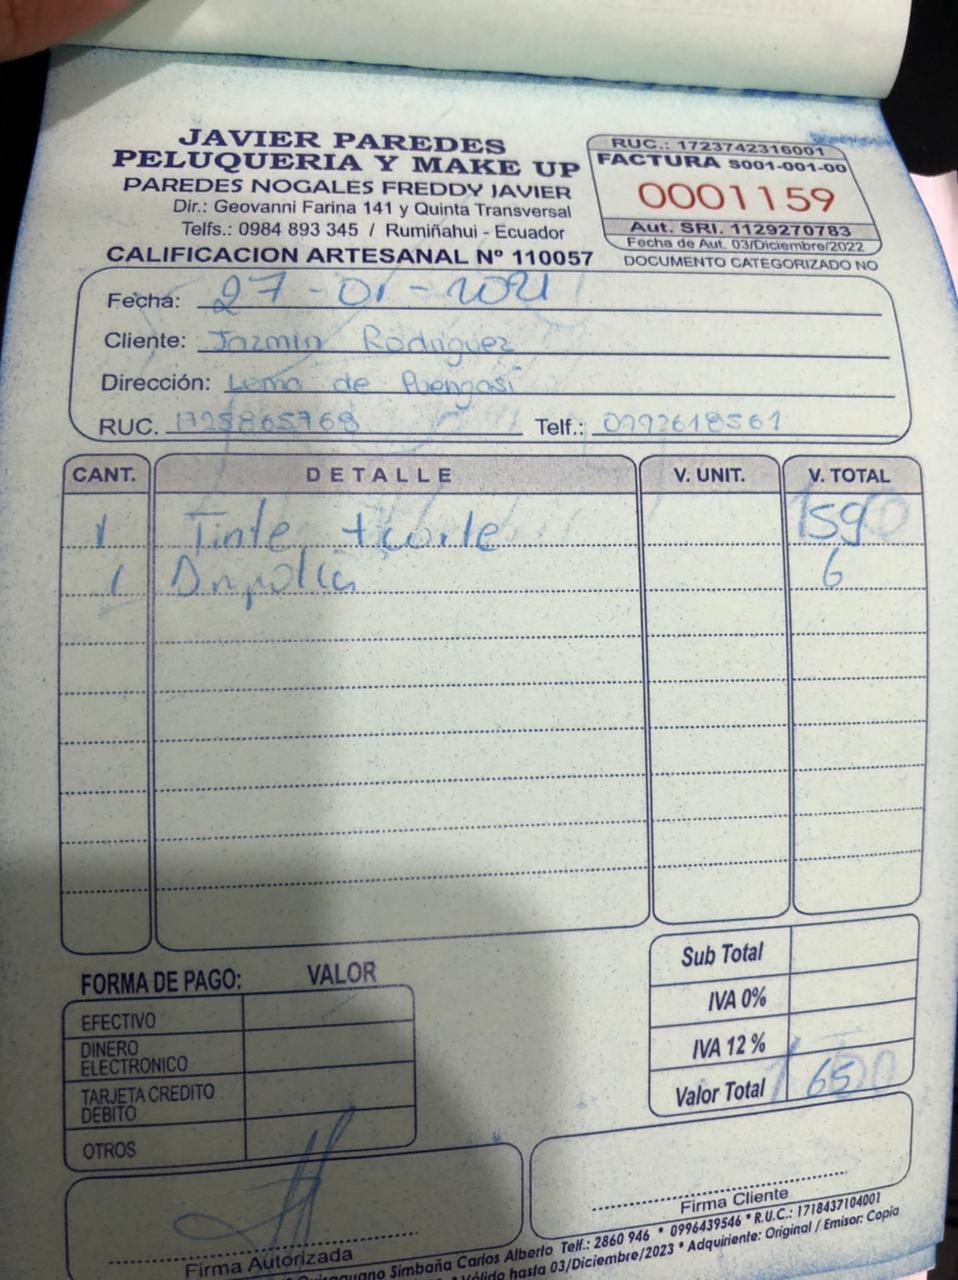 JAVIER PAREDES
PELUQUERIA Y MAKE UP
PAREDES NOGALES FREDDY JAVIER
Dir.: Geovanni Farina 141 y Quinta Transversal
Telfs.: 0984 893 345 / Rumiñahui - Ecuador
CALIFICACION ARTESANAL Nº 110057
RUC.: 1723742316001
FACTURA S001-001-00
0001159
Aut. SRI. 1129270783
Fecha de Aut. 03/Diciembre/2022
DOCUMENTO CATEGORIZADO NO
Fecha: 27-01-2021
Cliente: Jazmin Rodriguez
Dirección: Loma de Puengasi
RUC. 1725865768 Telf.: 0992618561
CANT. DETALLE V. UNIT. V. TOTAL
1 Tinte + corte 59
1 6
FORMA DE PAGO: VALOR
EFECTIVO
DINERO ELECTRONICO
TARJETA CREDITO DEBITO
OTROS
Sub Total
IVA 0%
IVA 12 %
Valor Total 65
Firma Autorizada
Firma Cliente
Simbaña Carlos Alberto Telf.: 2860 946 * 0996439546 * R.U.C.: 1718437104001
Válido hasta 03/Diciembre/2023 * Adquiriente: Original / Emisor: Copia